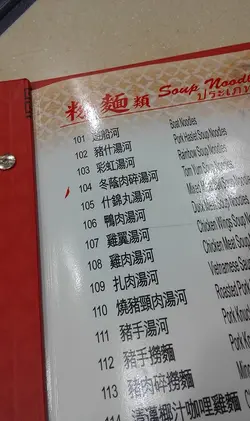 粉麵類 Soup Noodl
ประเภท
101 遊船河 Boat Noodles
102 豬什湯河 Pork Haslet Soup Noodles
103 彩虹湯河 Rainbow Soup Noodles
104 冬蔭肉碎湯河 Tom Yum Soup Noodles
105 什錦丸湯河 Mixed Meat
106 鴨肉湯河 Duck Meat Soup Noodles
107 雞翼湯河 Chicken Wings Soup Noodles
108 雞肉湯河 Chicken Meat Soup
109 扎肉湯河 Vietnamese Saus
110 燒豬頸肉湯河 Roasted Pork
111 豬手湯河 Pork Knuc
112 豬手撈麵 Pork Kn
113 豬肉碎撈麵 Minc
114 椰汁咖喱雞麵